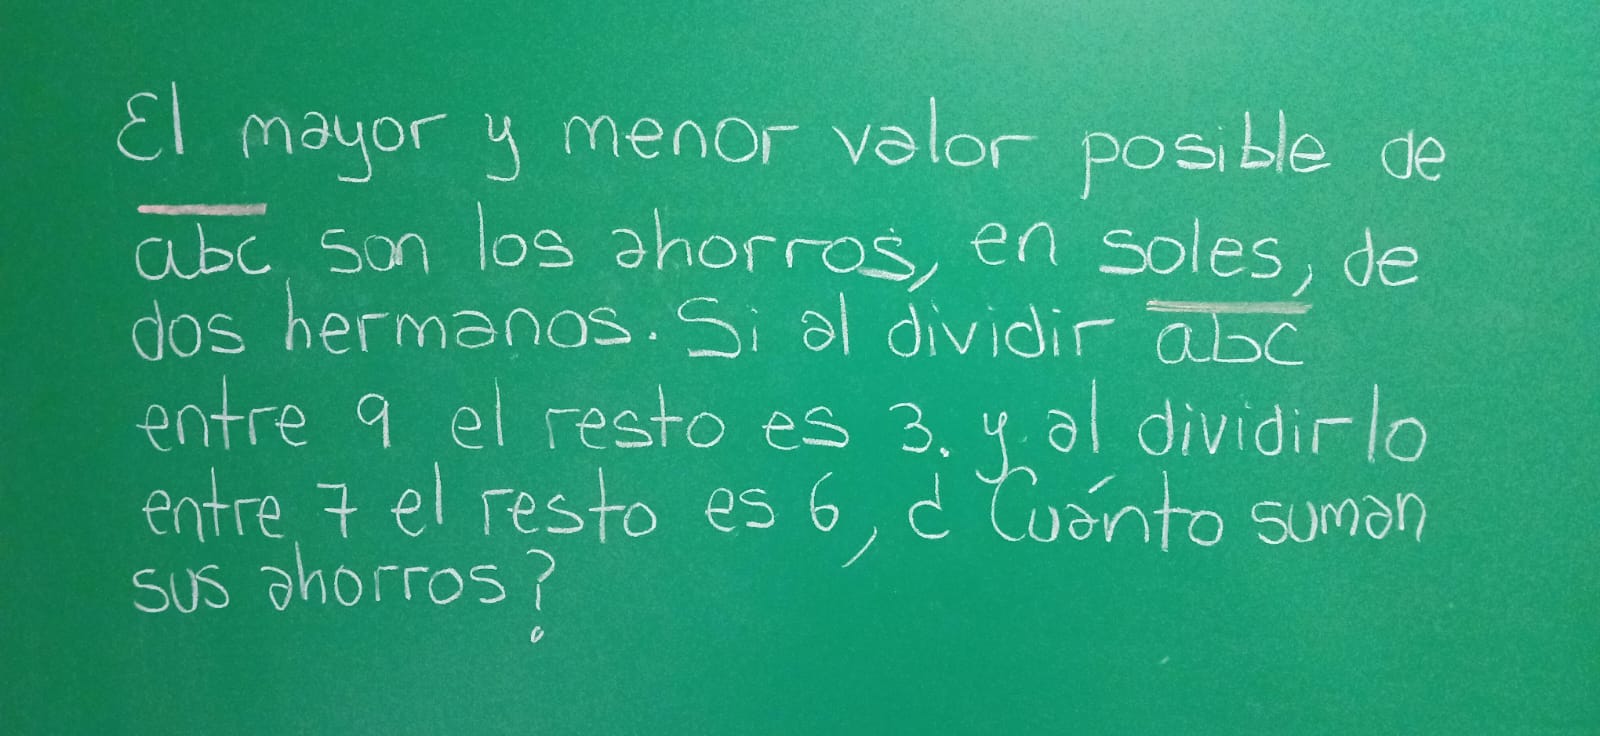 El mayor y menor valor posible de
abc son los ahorros, en soles, de
dos hermanos. Si al dividir abc
entre 9 el resto es 3. y al dividirlo
entre 7 el resto es 6, ¿Cuánto suman
sus ahorros?